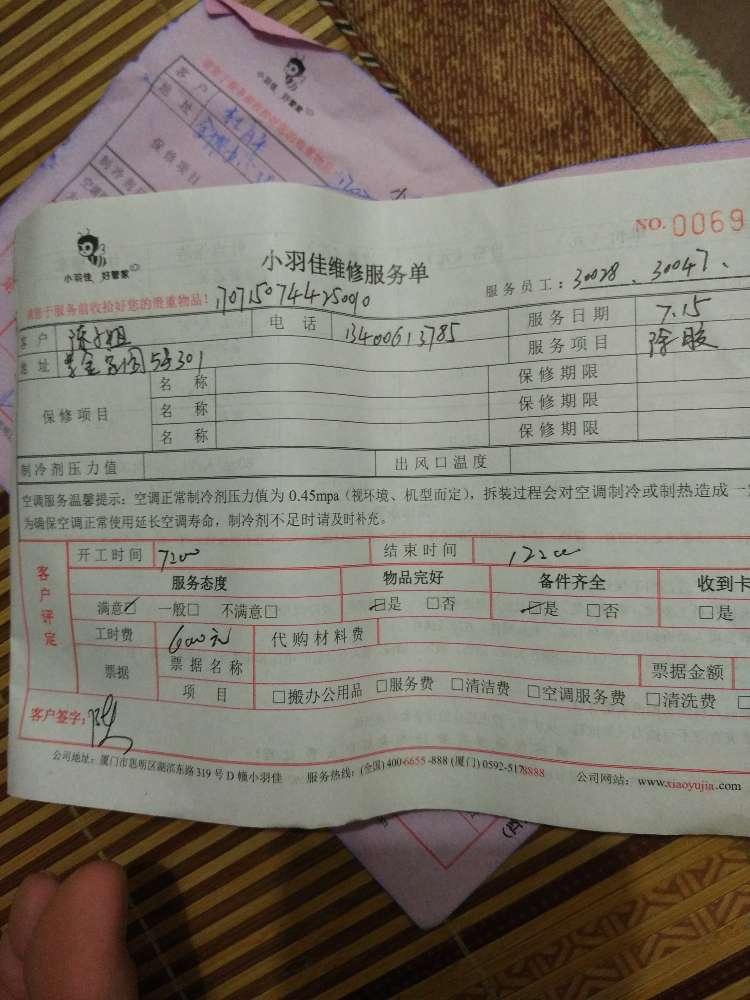 小羽佳 好管家
客户
地址
保修项目
小羽佳 好管家
小羽佳维修服务单
NO. 0069
请您于服务前收捡好您的贵重物品！
服务员工：30028、30047、
客户 陈小姐 电话 13400613785 服务日期 7.15
地址 5号301 服务项目 除胶
保修项目 名称 保修期限
名称 保修期限
名称 保修期限
制冷剂压力值 出风口温度
空调服务温馨提示：空调正常制冷剂压力值为 0.45mpa（视环境、机型而定），拆装过程会对空调制冷或制热造成一
为确保空调正常使用延长空调寿命，制冷剂不足时请及时补充。
客户评定
开工时间 结束时间
服务态度 物品完好 备件齐全 收到卡
满意☑ 一般□ 不满意□ ☑是 □否 ☑是 □否 □是
工时费 600元 代购材料费
票据 票据名称 票据金额
项目 □搬办公用品 □服务费 □清洁费 □空调服务费 □清洗费
客户签字：陈
公司地址：厦门市思明区湖滨东路 319 号 D 幢小羽佳 服务热线：(全国) 400-6655-888 (厦门) 0592-5178888 公司网站：www.xiaoyujia.com